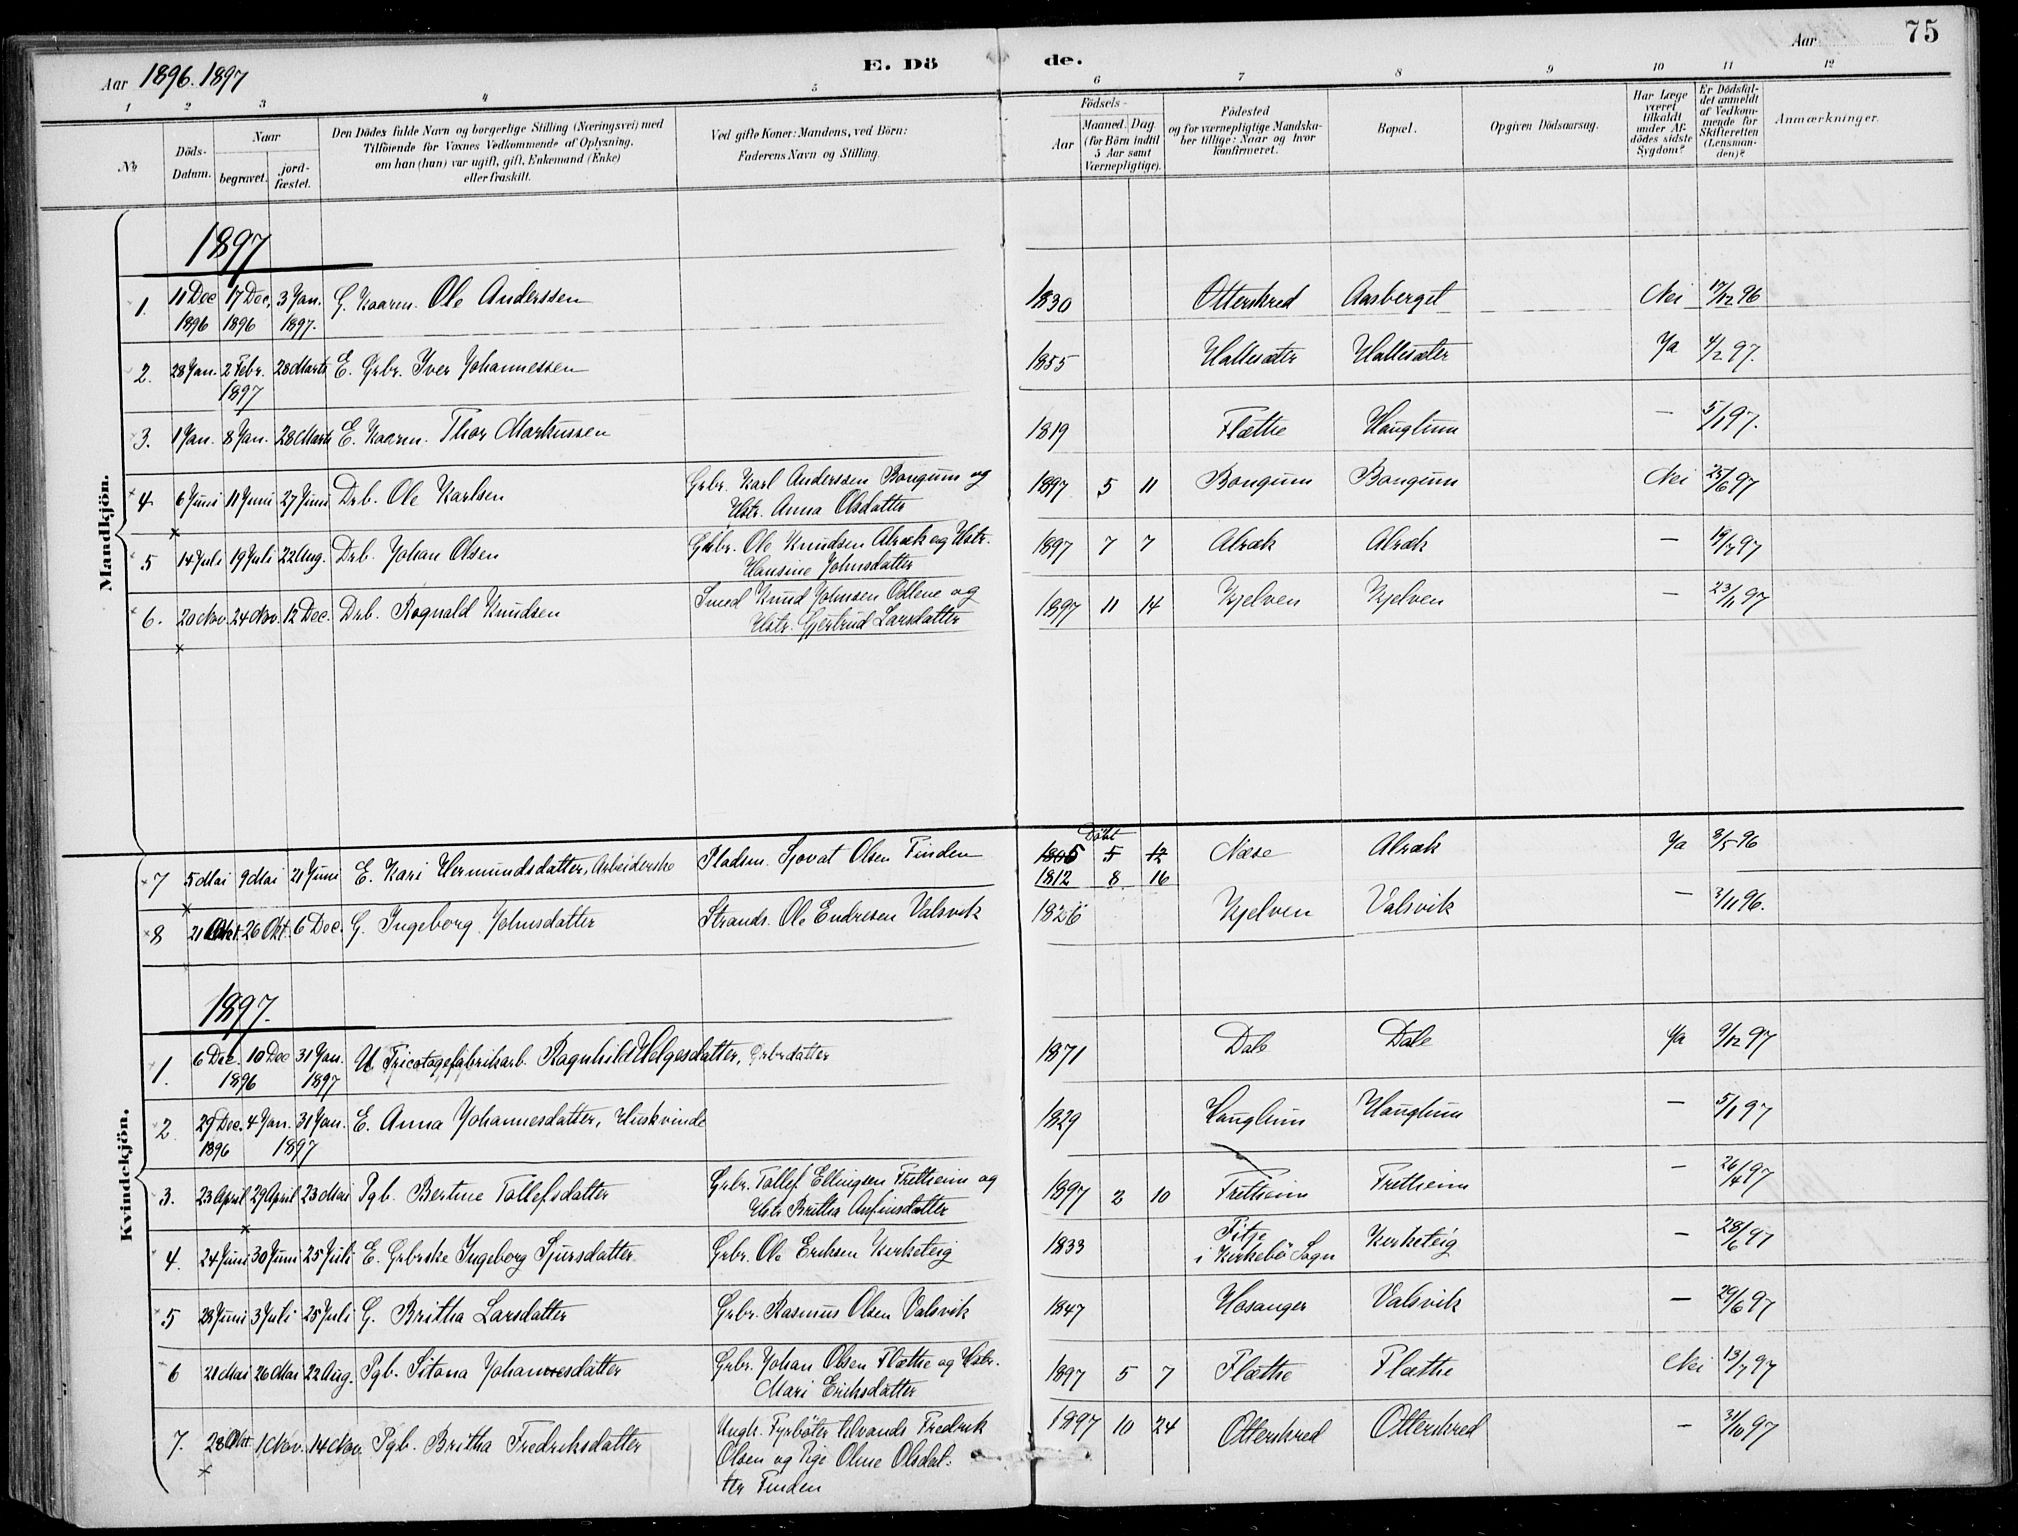 75
Aar 1896. 1897
E. Dö de.
Aar
1 2 3 4 5 6 7 8 9 10 11 12
No.
Döds-Datum.
Naar
begravet.
jord-fæstet.
Den Dödes fulde Navn og borgerlige Stilling (Næringsvei) med
Tilföiende for Voxnes Vedkommende af Oplysning,
om han (hun) var ugift, gift, Enkemand (Enke)
eller fraskilt.
Ved gifte Koner: Mandens, ved Börn:
Faderens Navn og Stilling.
Födsels-
Aar
Maaned. Dag
(for Börn indtil
5 Aar samt
Værnepligtige).
Födested
og for værnepligtige Mandska-
ber tillige: Naar og hvor
konfirmeret.
Bopæl.
Opgiven Dödsaarsag.
Har Læge
været
tilkaldt
under Af-
dödes sidste
Sygdom?
Er Dödsfal-
det anmeldt
af Vedkom-
mende for
Skifteretten
(Lensman-
den)?
Anmærkninger.
Mandkjön.
1897
1. 11 Dec 1896 17 Dec. 1896 3 Jan. 1897. G. Kaarm. Ole Anderssen 1830 Otterskred Aasberget Nei 17/12 96
2. 28 Jan. 2 Febr. 1897 28 Marts E. Grbr. Iver Johannessen 1855 Hallesæter Hallesæter Ja 4/2 97.
3. 1 Jan. 8 Jan. 28 Marts E. Kaarm. Thor Markussen 1819 Flæthe Hauglum — 5/1 97.
4. 6 Juni 11 Juni 27 Juni Drb. Ole Karlsen Grbr. Karl Anderssen Bongum og
Hstr. Anna Olsdatter 1897 5 11 Bongum Bongum Nei 25/6 97
5 14 Juli 19 Juli 22 Aug. Drb. Johan Olsen Grbr. Ole Knudsen Alræk og Hstr.
Hansine Johnsdatter 1897 7 7 Alræk Alræk — 19/7 97
6. 20 Nov. 24 Nov. 12 Dec. Drb. Ragnald Knudsen Smed Knud Johnsen Odlene og
Hstr. Gjertrud Larsdatter 1897 11 14 Kjelven Kjelven — 23/11 97
Kvindekjön.
7 5 Mai 9 Mai 21 Juni E. Kari Hermundsdatter, Arbeiderske Pladsm. Sjovat Olsen Finden Döbt 1805 5 12
1812 8 16 Nese Alræk Ja 8/5 96
8 21 Okt. 26 Okt. 6 Dec. G. Ingeborg Johnsdatter Strands. Ole Endresen Valsvik 1826 Kjelven Valsvik — 3/11 96.
1897.
1. 6 Dec. 1896 10 Dec 31 Jan. 1897 U Tricotagefabrikarb. Ragnhild Helgesdatter, Grbrdatter 1871 Dale Dale Ja 9/12 97
2 29 Dec. 1896 4 Jan. 31 Jan. 1897 E. Anna Johannesdatter, Huskvinde 1829 Hauglum Hauglum — 5/1 97
3. 23 April 29 April 23 Mai Pgb. Bertine Tollefsdatter Grbr. Tollef Ellingsen Fretheim og
Hstr Britha Anfinsdatter 1897 2 10 Fretheim Fretheim — 26/4 97
4. 24 Juni 30 Juni 25 Juli E. Grbrske Ingeborg Sjursdatter Grbr. Ole Eriksen Kirketeig 1833 Fitje
i Kirkebö Sogn Kirketeig — 28/6 97
5 28 Juni 3 Juli 25 Juli G. Britha Larsdatter Grbr. Rasmus Olsen Valsvik 1847 Hosanger Valsvik — 29/6 97
6 21 Mai 26 Mai 22 Aug. Pgb. Sitona Johannesdatter Grbr. Johan Olsen Flæthe og Hstr.
Mari Eriksdatter 1897 5 7 Flæthe Flæthe Nei 13/7 97
7. 28 Okt. 1 Nov. 14 Nov. Pgb. Britha Fredriksdatter Ungk. Fyrböter Fredrik
Olsen og Pige Oline Olsdat-
ter Finden 1897 10 24 Otterskred Otterskred — 31/10 97